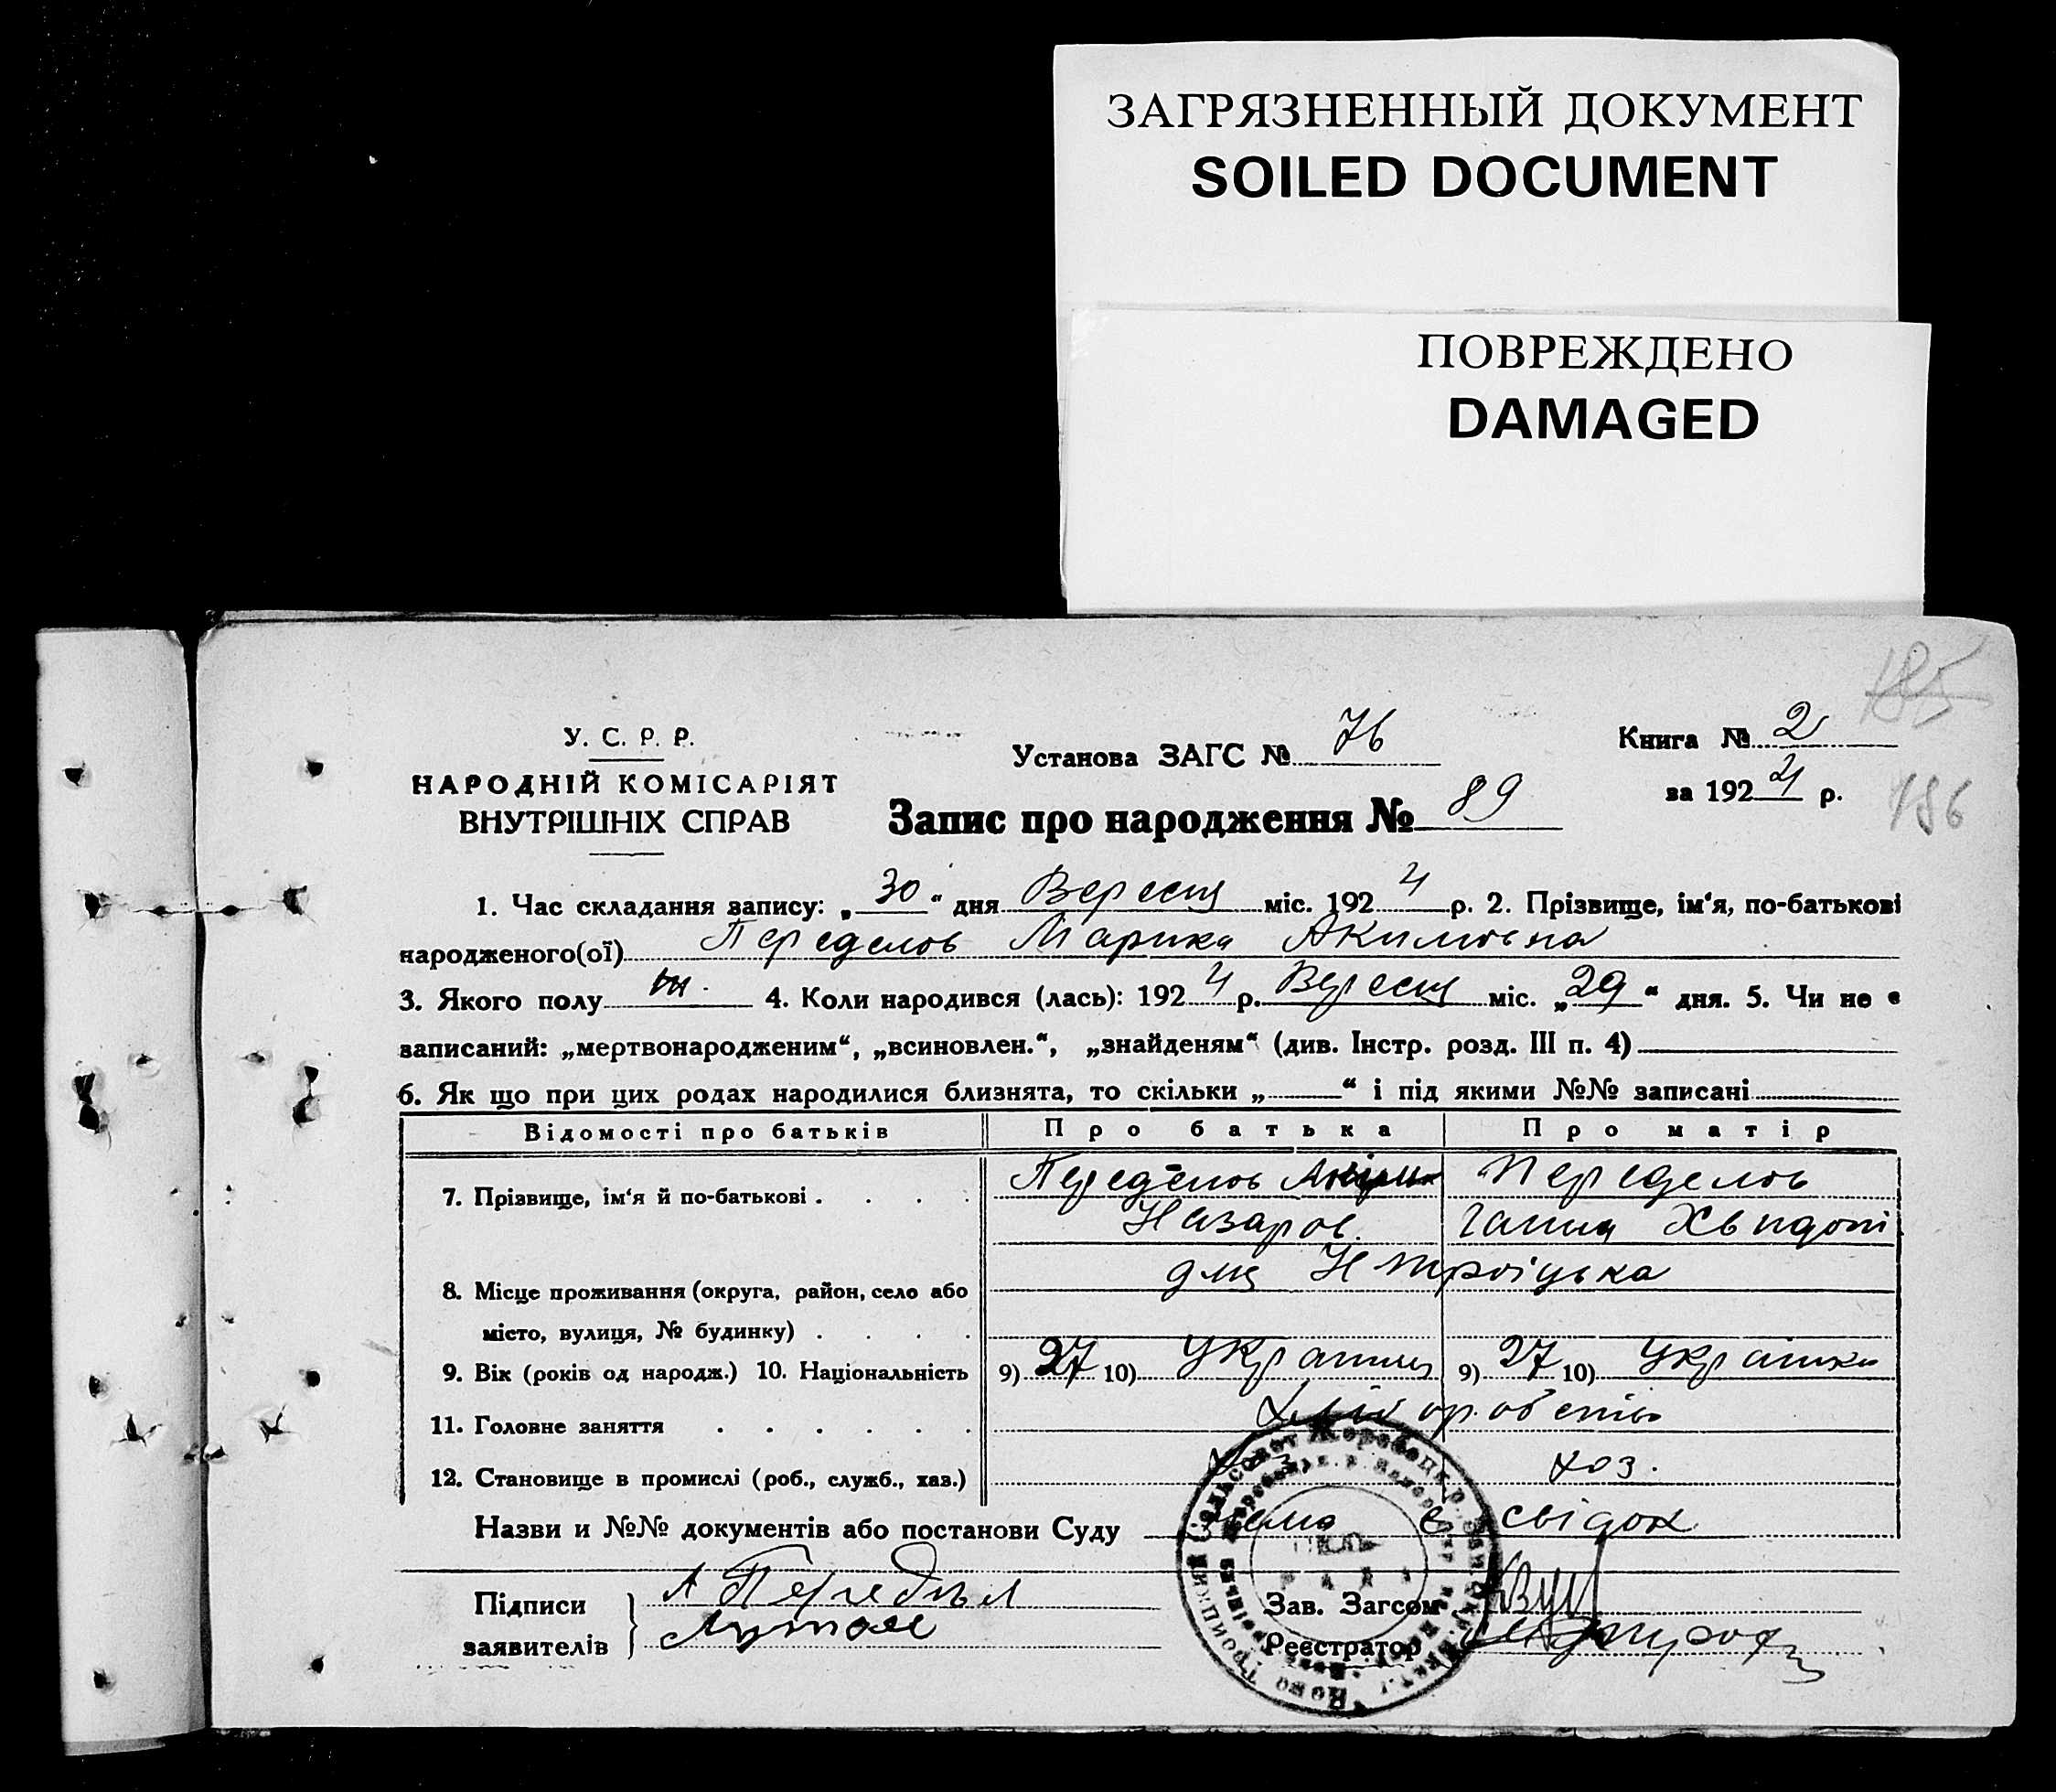 ЗАГРЯЗНЕННЫЙ ДОКУМЕНТ
SOILED DOCUMENT
ПОВРЕЖДЕНО
DAMAGED
185
У. С. Р. Р.
НАРОДНІЙ КОМІСАРІЯТ
ВНУТРІШНІХ СПРАВ
Установа ЗАГС № 76
Книга № 2
за 1924 р.
186
Запис про народження № 89
1. Час складання запису: „30“ дня Вересня міс. 1924 р. 2. Прізвище, ім‘я, по-батькові
народженого(ої) Переделов Марика Акимовна
3. Якого полу 4. Коли народився (лась): 1924 р. Вересня міс. „29“ дня. 5. Чи не є
записаний: „мертвонародженим“, „всиновлен.“, „знайденям“ (див. Інстр. розд. III п. 4)
6. Як що при цих родах народилися близнята, то скільки „ “ і під якими №№ записані
Відомості про батьків Про батька Про матір
7. Прізвище, ім‘я й по-батькові . . . . Переделов Переделов
Назаров. Ганна
8. Місце проживання (округа, район, село або Н Троіцька
місто, вулиця, № будинку) . . . .
9. Вік (років од народж.) 10. Національність 9) 27 10) Украинец 9) 27 10) Украінка
11. Головне заняття . . . . . . Хліборобство
12. Становище в промислі (роб., служб., хаз.) хоз. хоз.
Назви и №№ документів або постанови Суду нема є свідок
Підписи заявителів
А Передил
Зав. Загсом
Реєстратор